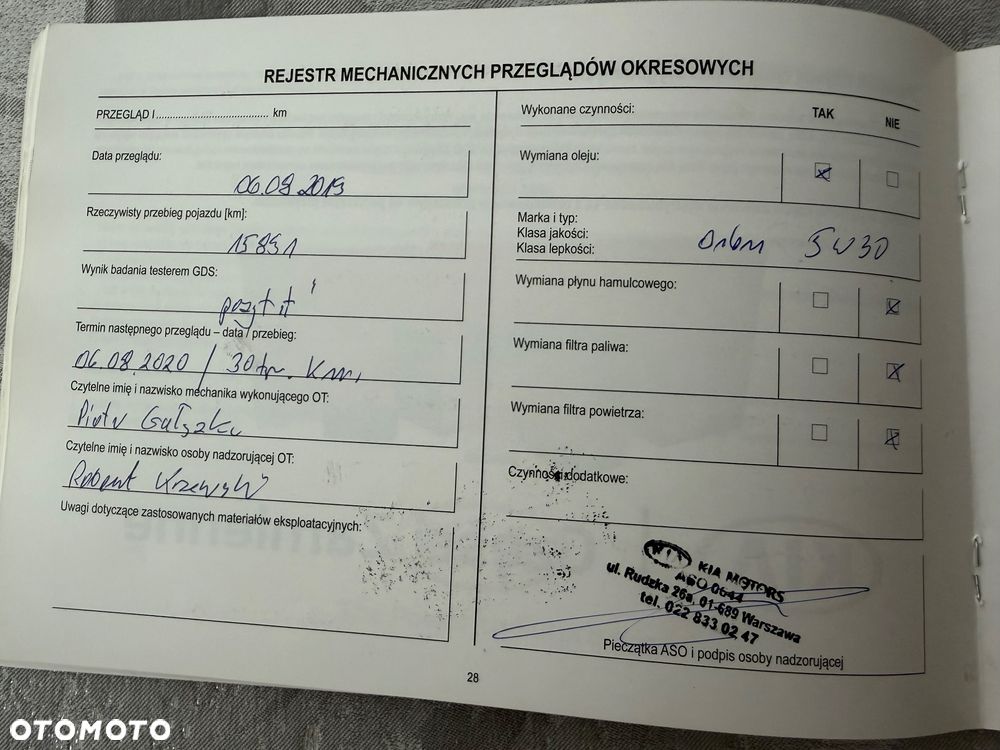 REJESTR MECHANICZNYCH PRZEGLĄDÓW OKRESOWYCH
PRZEGLĄD I....................................... km
Data przeglądu:
06.08.2019
Rzeczywisty przebieg pojazdu [km]:
15891
Wynik badania testerem GDS:
Termin następnego przeglądu – data / przebieg:
06.08.2020 / 30 km
Czytelne imię i nazwisko mechanika wykonującego OT:
Piotr
Czytelne imię i nazwisko osoby nadzorującej OT:
Robert
Uwagi dotyczące zastosowanych materiałów eksploatacyjnych:
Wykonane czynności: TAK NIE
Wymiana oleju:
Marka i typ:
Klasa jakości:
Klasa lepkości:
Orlen 5W30
Wymiana płynu hamulcowego:
Wymiana filtra paliwa:
Wymiana filtra powietrza:
Czynności dodatkowe:
KIA KIA MOTORS
ASO 0644
ul. Rudzka 26a, 01-689 Warszawa
tel. 022 833 02 47
Pieczątka ASO i podpis osoby nadzorującej
28
OTOMOTO